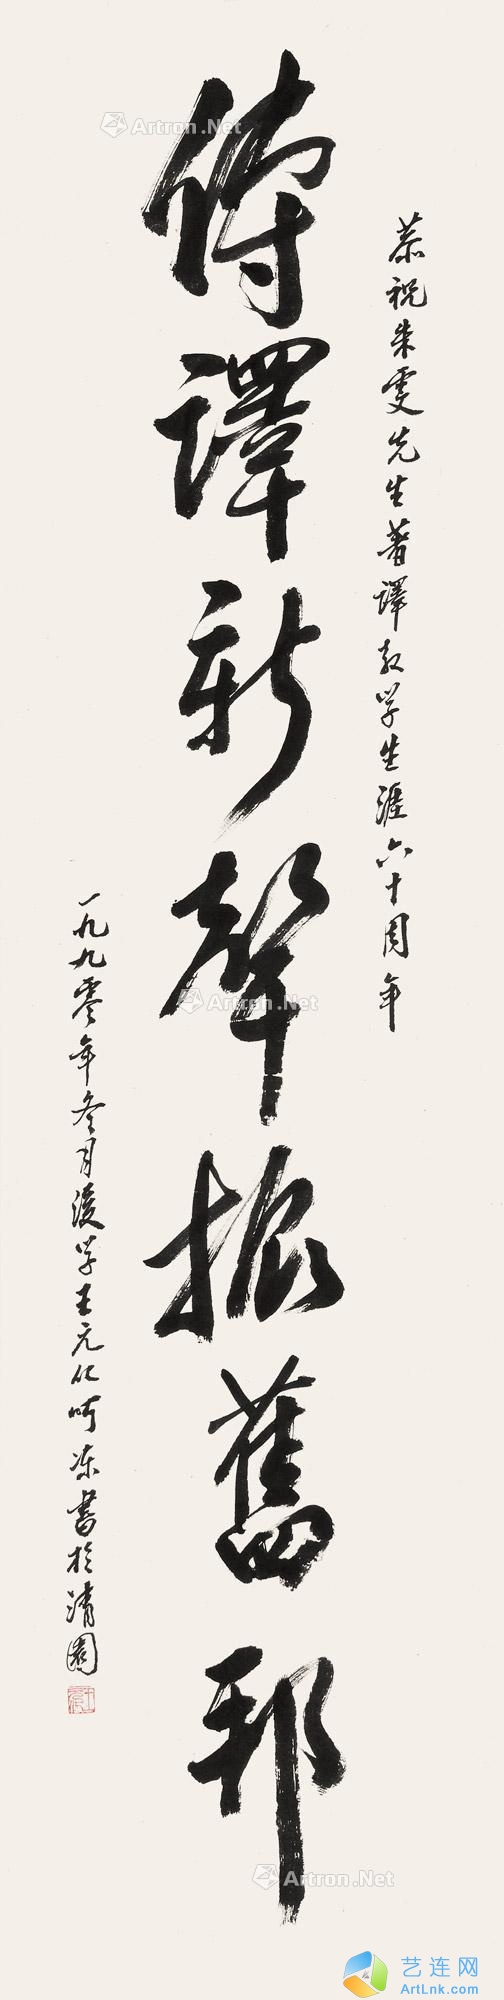 恭祝朱雯先生著譯教学生涯六十周年
傳譯新聲振舊邦
一九九零年冬月後学王元化呵冻書於清園
Artron.Net
Artron.Net
Artron.Net
艺连网
ArtLnk.com